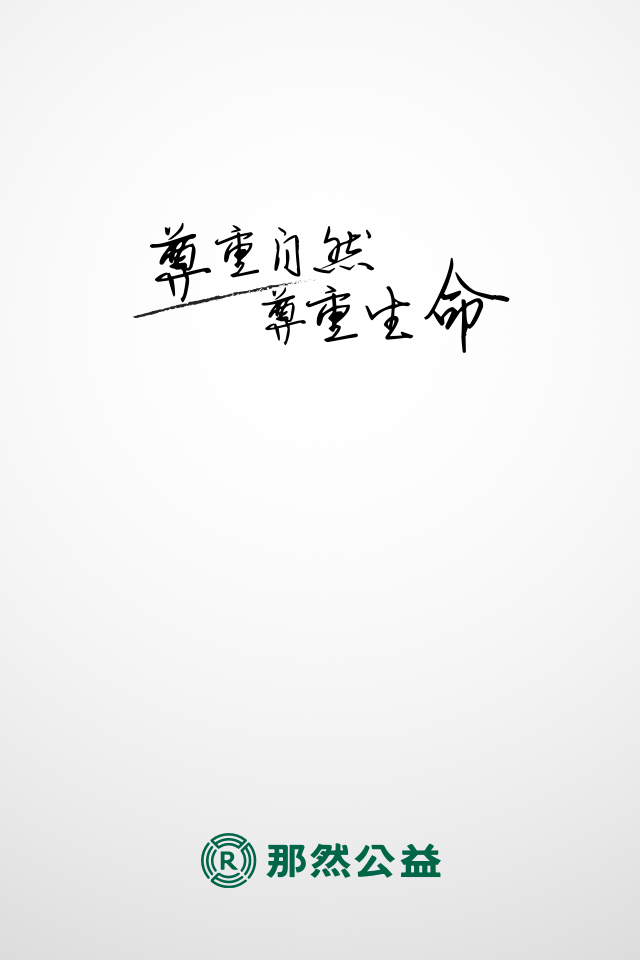 尊重自然
尊重生命
R 那然公益